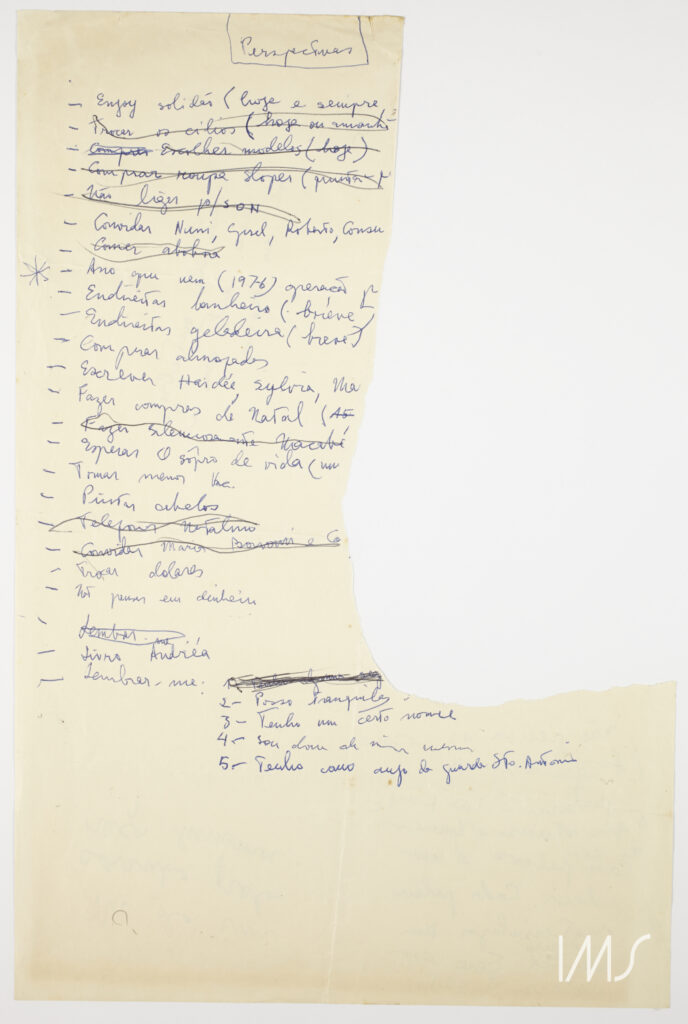 Perspectivas
– Enjoy solidão (hoje e sempre
– Trocar os cílios (hoje ou amanhã
– Comprar Escolher modelos (hoje)
– Comprar roupa Sloper
– Não ligar p/ SON
– Convidar Nuni, Gisel, Roberto,
– Comer abóbora
– Ano que vem (1976) operação
– Endireitar banheiro (brève)
– Endireitar geladeira (breve)
– Comprar almofadas
– Escrever Haidée, Sylvia, Ma
– Fazer compras de Natal (
– Fazer
– Esperar O sôpro de vida (
– Tomar menos
– Pintar cabelos
– Telefonar
– Convidar Maria Bonomi e Co
– Trocar dolares
– Not pensar em dinheiro
– Lembrar-me
– Livro Andréa
– Lembrar-me: 1
2 – Posso
3 – Tenho um certo nome
4 – Sou dona de mim mesma
5 – Tenho como anjo da guarda Sto. Antonio
IMS